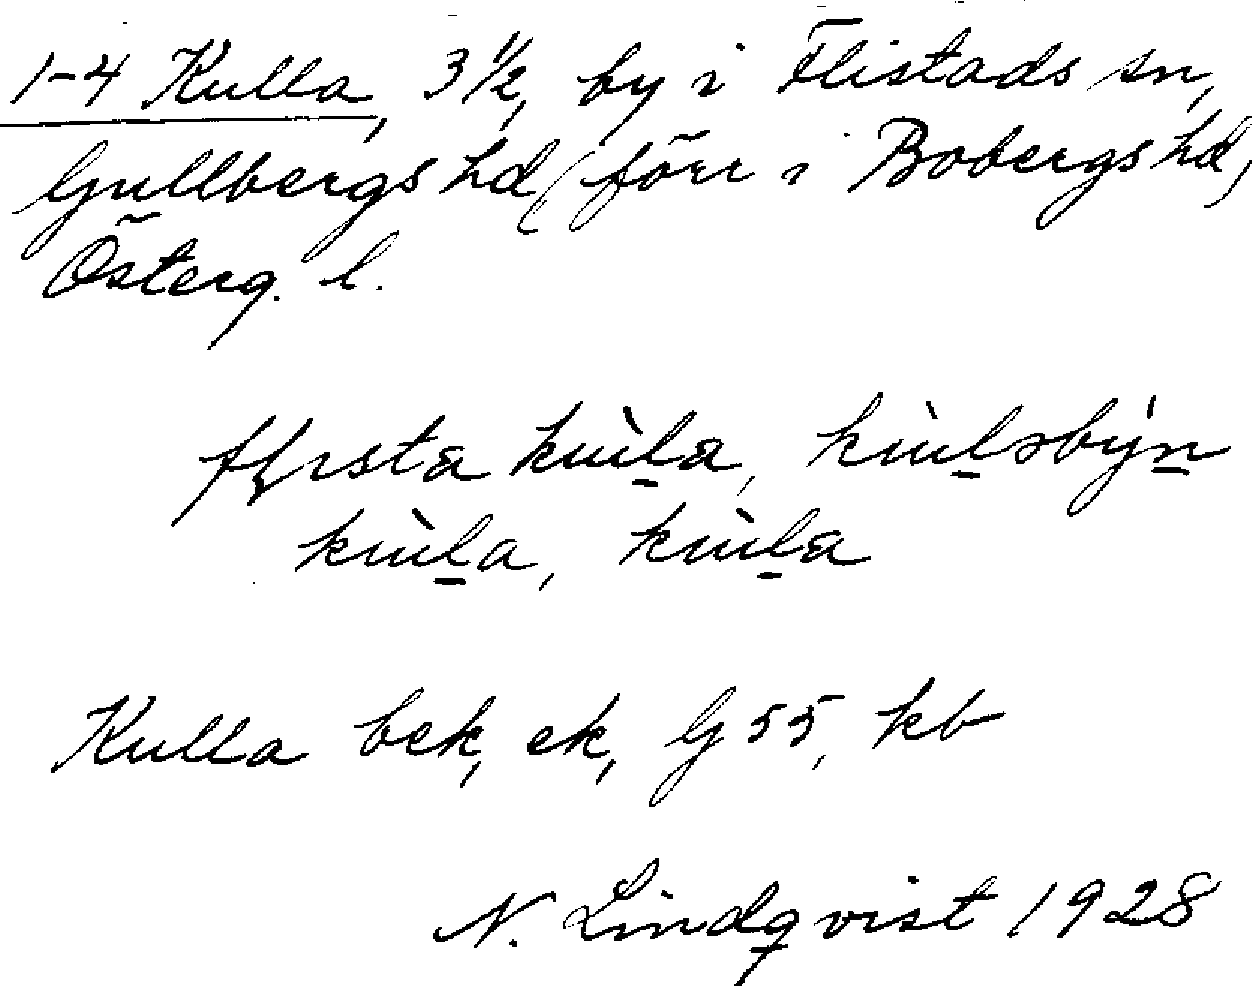 1-4 Kulla, 3 1/2, by i Flistads sn,
Gullbergs hd (förr i Bobergs hd,
Österg. l.
kùl̲a, kùl̲sbýn̲
kùl̲a, kùl̲a
Kulla bek, ek, G 55, kb
N. Lindqvist 1928